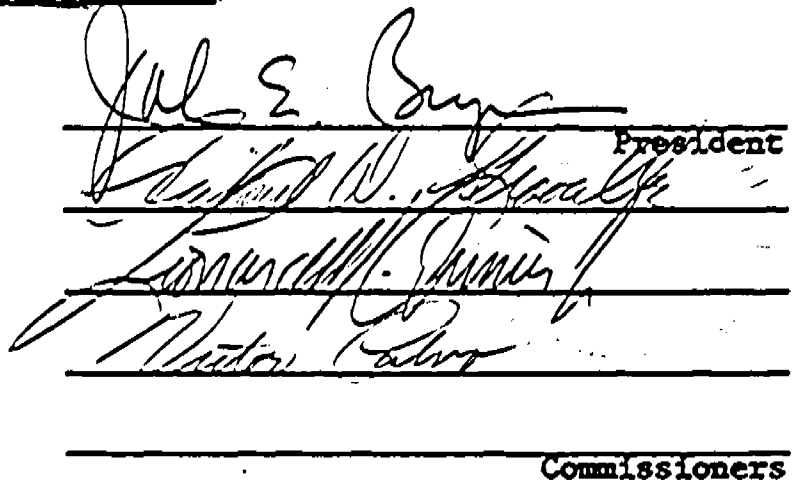 John E. Bryson
President
Richard D. Gravelle
Leonard M. Grimes, Jr.
Victor Calvo
Commissioners